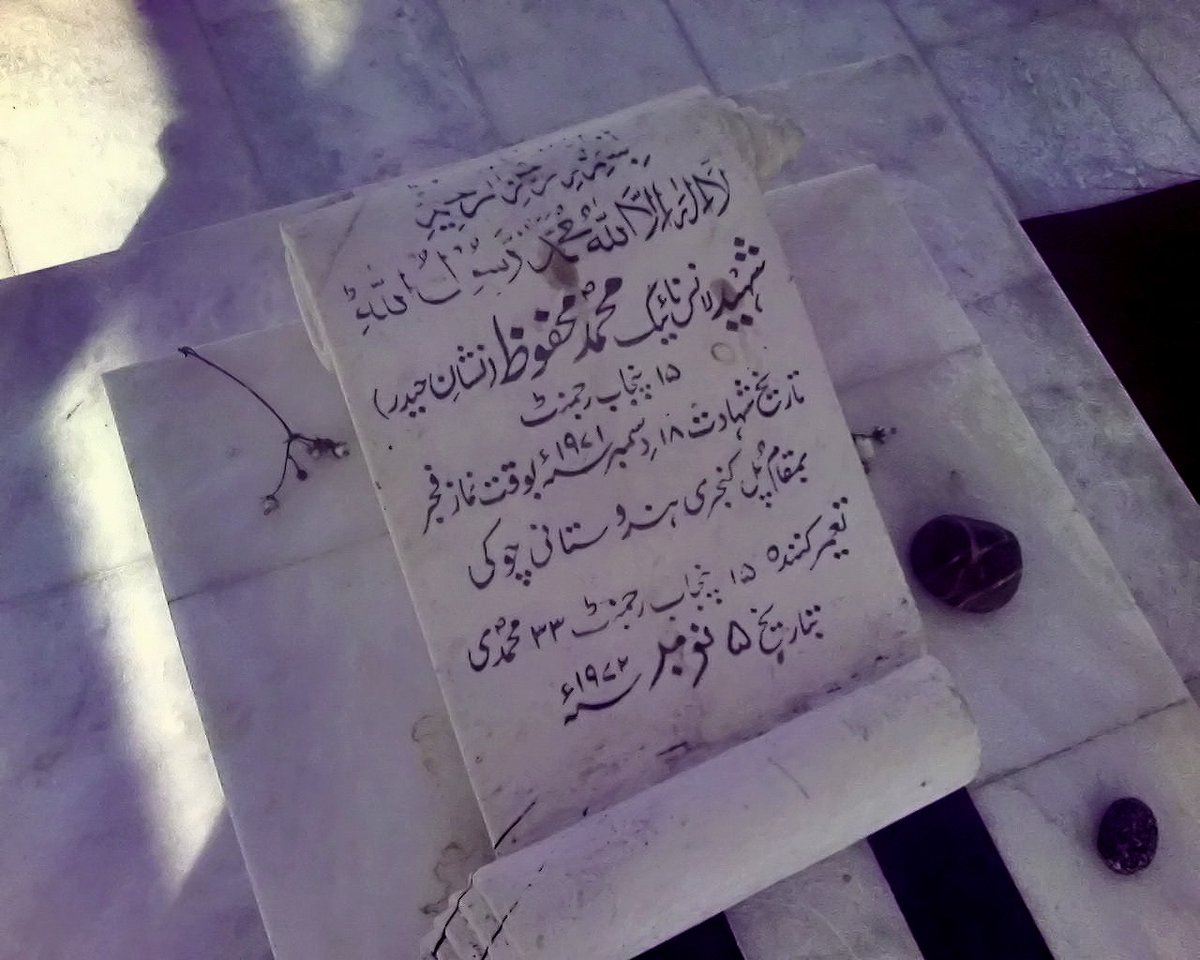 بسم اللہ الرحمن الرحیم
لَا اِلٰہَ اِلَّا اللہُ مُحَمَّدٌ رَّسُوْلُ اللہِ ؕ
شہید لانس نائیک محمدؐ محفوظ (نشانِ حیدر)
۱۵ پنجاب رجمنٹ
تاریخ شہادت ۱۸ دسمبر سنہ ۱۹۷۱ء بوقت نماز فجر
بمقام پُل کنجری ہندوستانی چوکی
تعمیر کنندہ ۱۵ پنجاب رجمنٹ ۳۳ محمدؐی
بتاریخ ۵ نومبر سنہ ۱۹۷۲ء